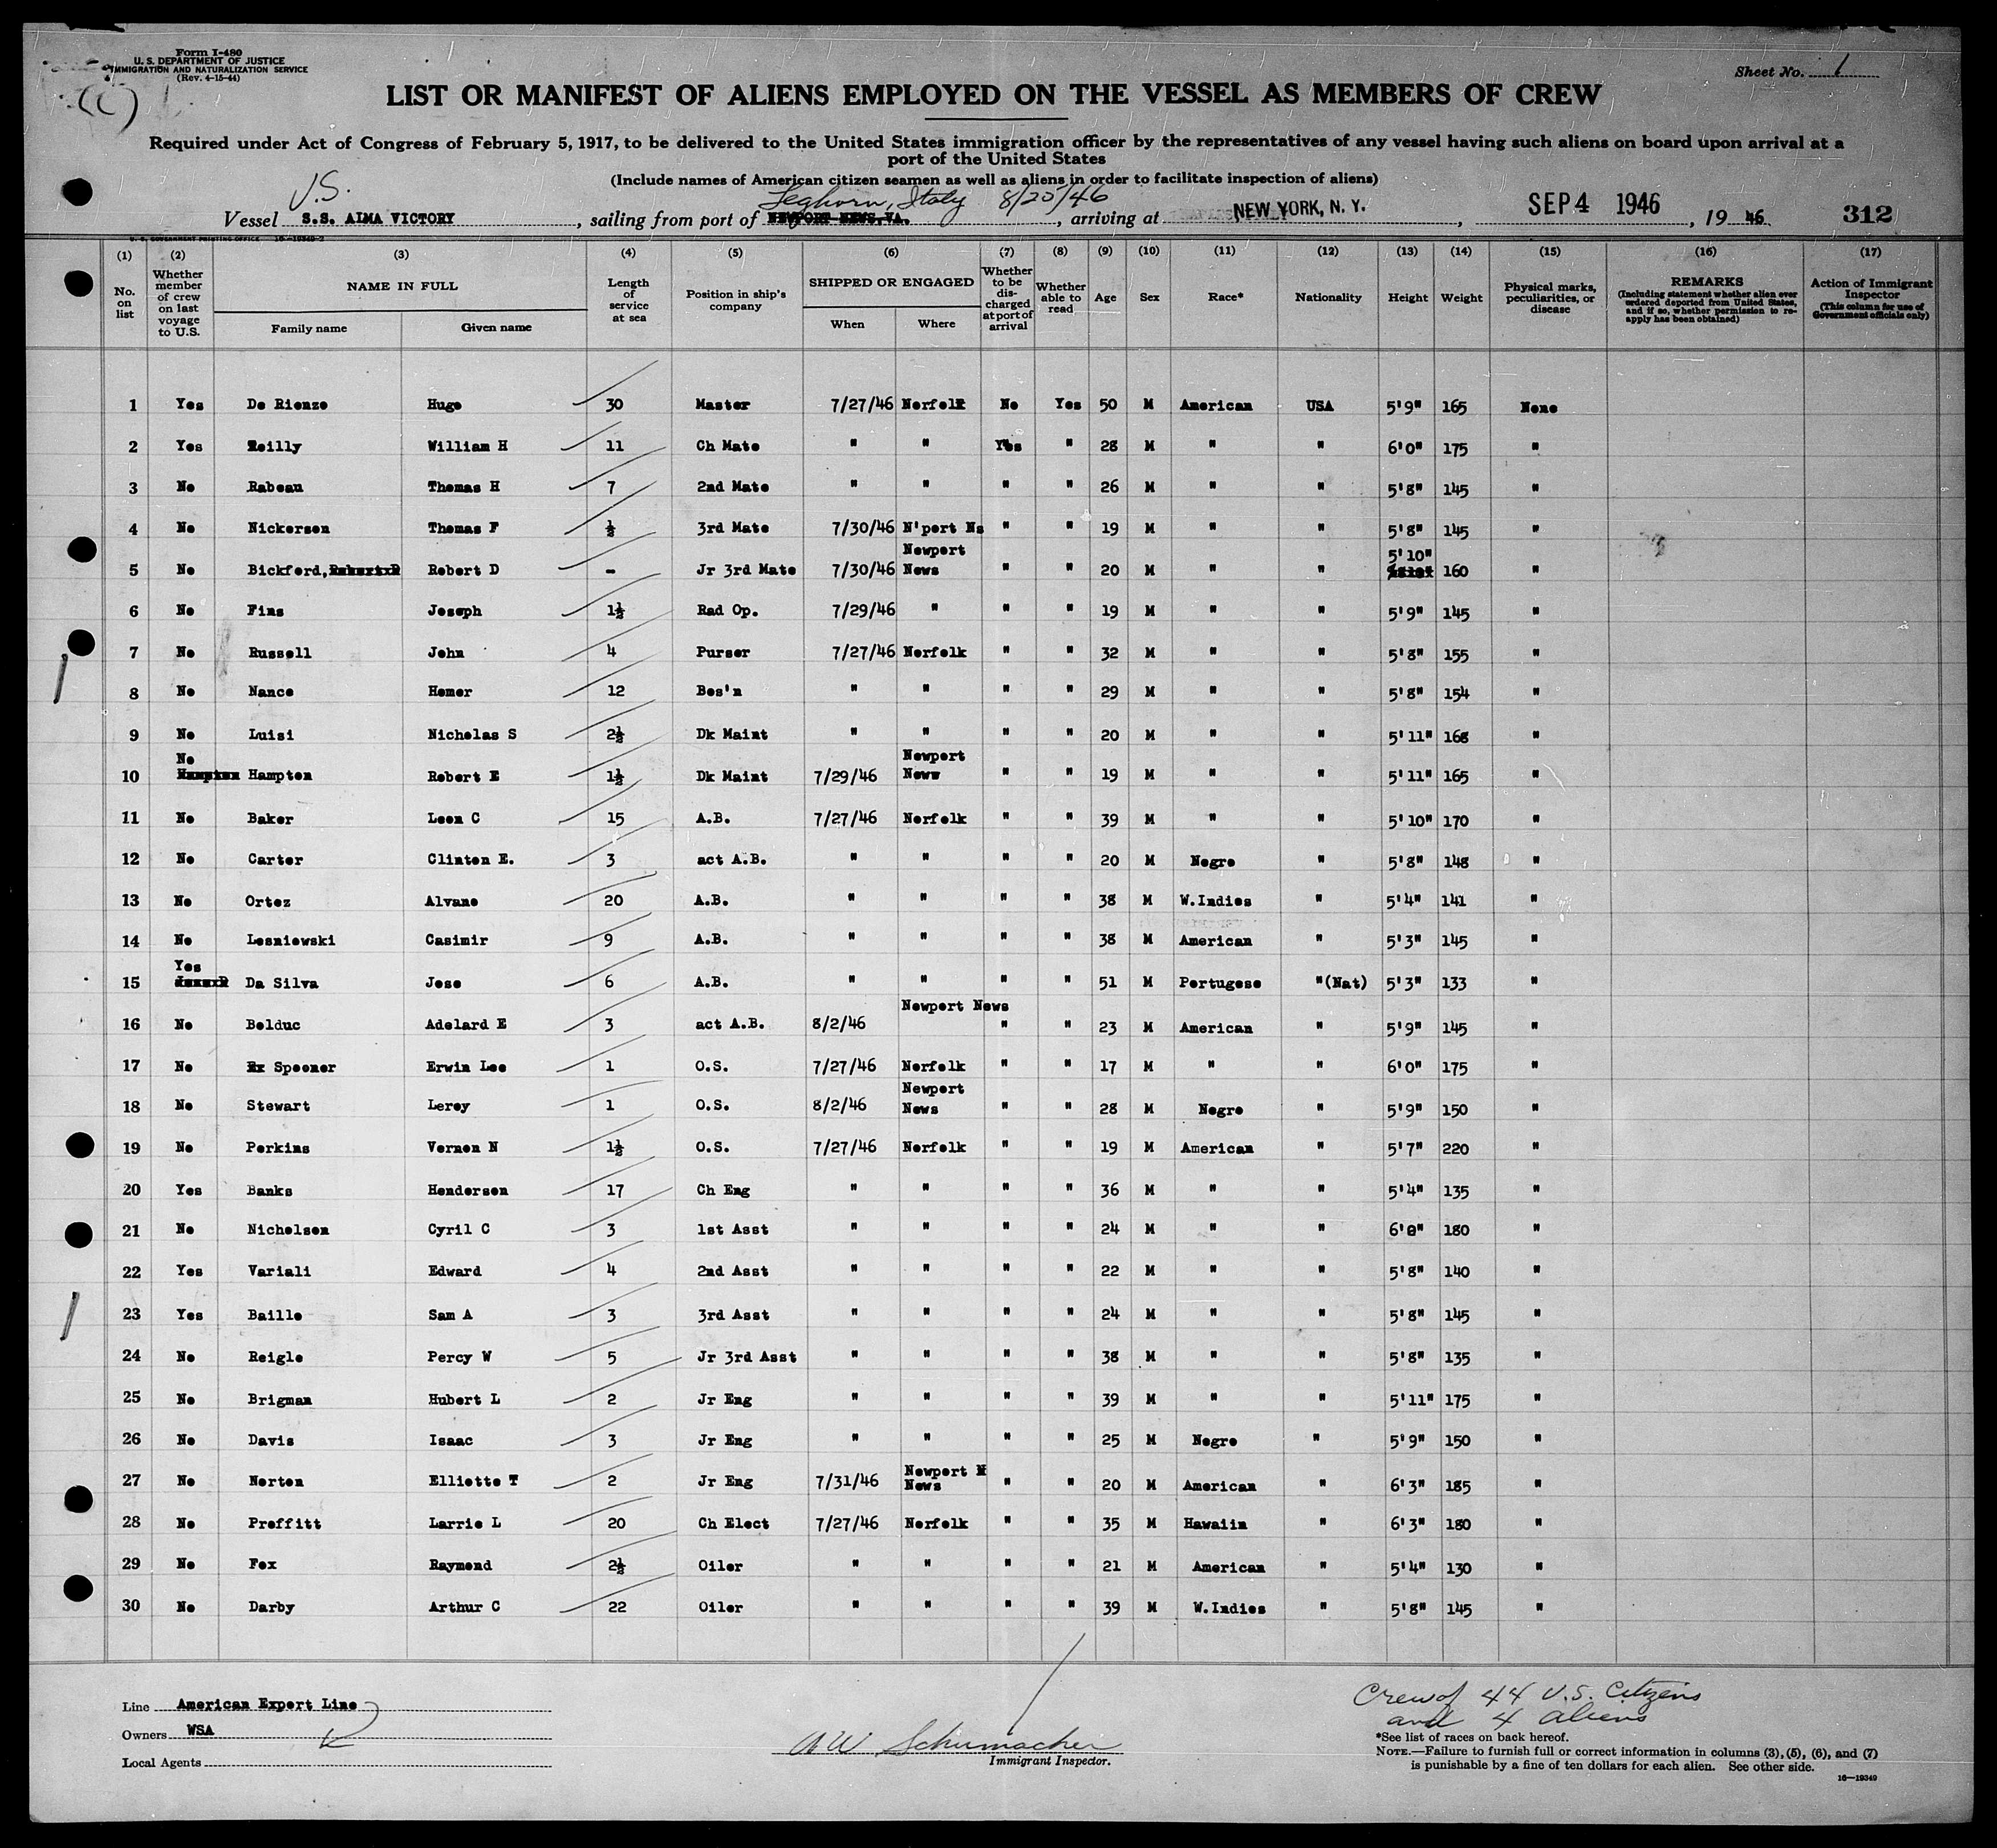 Form I-480
U. S. DEPARTMENT OF JUSTICE
IMMIGRATION AND NATURALIZATION SERVICE
(Rev. 4-15-44)
(C)
Sheet No. 1
LIST OR MANIFEST OF ALIENS EMPLOYED ON THE VESSEL AS MEMBERS OF CREW
Required under Act of Congress of February 5, 1917, to be delivered to the United States immigration officer by the representatives of any vessel having such aliens on board upon arrival at a
port of the United States
(Include names of American citizen seamen as well as aliens in order to facilitate inspection of aliens)
U.S. Leghorn, Italy 8/25/46
Vessel S.S. AIMA VICTORY, sailing from port of NEWPORT NEWS, VA., arriving at NEW YORK, N. Y., SEP 4 1946, 19 46 312
U. S. GOVERNMENT PRINTING OFFICE 16—19349-2
(1) (2) (3) (4) (5) (6) (7) (8) (9) (10) (11) (12) (13) (14) (15) (16) (17)
No. on list
Whether member of crew on last voyage to U.S.
NAME IN FULL
Family name Given name
Length of service at sea
Position in ship's company
SHIPPED OR ENGAGED
When Where
Whether to be discharged at port of arrival
Whether able to read
Age
Sex
Race*
Nationality
Height
Weight
Physical marks, peculiarities, or disease
REMARKS
(Including statement whether alien ever ordered deported from United States, and if so, whether permission to reapply has been obtained)
Action of Immigrant Inspector
(This column for use of Government officials only)
1 Yes De Rienzo Hugo 30 Master 7/27/46 Norfolk No Yes 50 M American USA 5'9" 165 None
2 Yes Reilly William H 11 Ch Mate " " Yes " 28 M " " 6'0" 175 "
3 No Rabeau Thomas H 7 2nd Mate " " " " 26 M " " 5'8" 145 "
4 No Nickerson Thomas F ½ 3rd Mate 7/30/46 N'port Ns " " 19 M " " 5'8" 145 "
5 No Bickford, Robert D - Jr 3rd Mate 7/30/46 Newport News " " 20 M " " 5'10" 160 "
6 No Fins Joseph 1½ Rad Op. 7/29/46 " " " 19 M " " 5'9" 145 "
7 No Russell John 4 Purser 7/27/46 Norfolk " " 32 M " " 5'8" 155 "
8 No Nance Homer 12 Bos'n " " " " 29 M " " 5'8" 154 "
9 No Luisi Nicholas S 2½ Dk Maint " " " " 20 M " " 5'11" 168 "
10 No Hampton Hampton Robert E 1½ Dk Maint 7/29/46 Newport News " " 19 M " " 5'11" 165 "
11 No Baker Leon C 15 A.B. 7/27/46 Norfolk " " 39 M " " 5'10" 170 "
12 No Carter Clinton E. 3 act A.B. " " " " 20 M Negro " 5'8" 148 "
13 No Ortez Alvano 20 A.B. " " " " 38 M W.Indies " 5'4" 141 "
14 No Lesniewski Casimir 9 A.B. " " " " 38 M American " 5'3" 145 "
15 Yes Da Silva Jose 6 A.B. " " " " 51 M Portugese "(Nat) 5'3" 133 "
16 No Bolduc Adelard E 3 act A.B. 8/2/46 Newport News " " 23 M American " 5'9" 145 "
17 No Spooner Erwin Lee 1 O.S. 7/27/46 Norfolk " " 17 M " " 6'0" 175 "
18 No Stewart Leroy 1 O.S. 8/2/46 Newport News " " 28 M Negro " 5'9" 150 "
19 No Perkins Vernon N 1½ O.S. 7/27/46 Norfolk " " 19 M American " 5'7" 220 "
20 Yes Banks Henderson 17 Ch Eng " " " " 36 M " " 5'4" 135 "
21 No Nicholson Cyril C 3 1st Asst " " " " 24 M " " 6'0" 180 "
22 Yes Variali Edward 4 2nd Asst " " " " 22 M " " 5'8" 140 "
23 Yes Baille Sam A 3 3rd Asst " " " " 24 M " " 5'8" 145 "
24 No Reigle Percy W 5 Jr 3rd Asst " " " " 38 M " " 5'8" 135 "
25 No Brigman Hubert L 2 Jr Eng " " " " 39 M " " 5'11" 175 "
26 No Davis Isaac 3 Jr Eng " " " " 25 M Negro " 5'9" 150 "
27 No Norton Elliotte T 2 Jr Eng 7/31/46 Newport N News " " 20 M American " 6'3" 185 "
28 No Proffitt Larrie L 20 Ch Elect 7/27/46 Norfolk " " 35 M Hawaiin " 6'3" 180 "
29 No Fox Raymond 2½ Oiler " " " " 21 M American " 5'4" 130 "
30 No Darby Arthur C 22 Oiler " " " " 39 M W.Indies " 5'8" 145 "
Line American Export Line
Owners WSA
Local Agents
A W Schumacher
Immigrant Inspector.
Crew of 44 U.S. Citizens
and 4 aliens
*See list of races on back hereof.
NOTE.—Failure to furnish full or correct information in columns (3), (5), (6), and (7)
is punishable by a fine of ten dollars for each alien. See other side.
16—19349